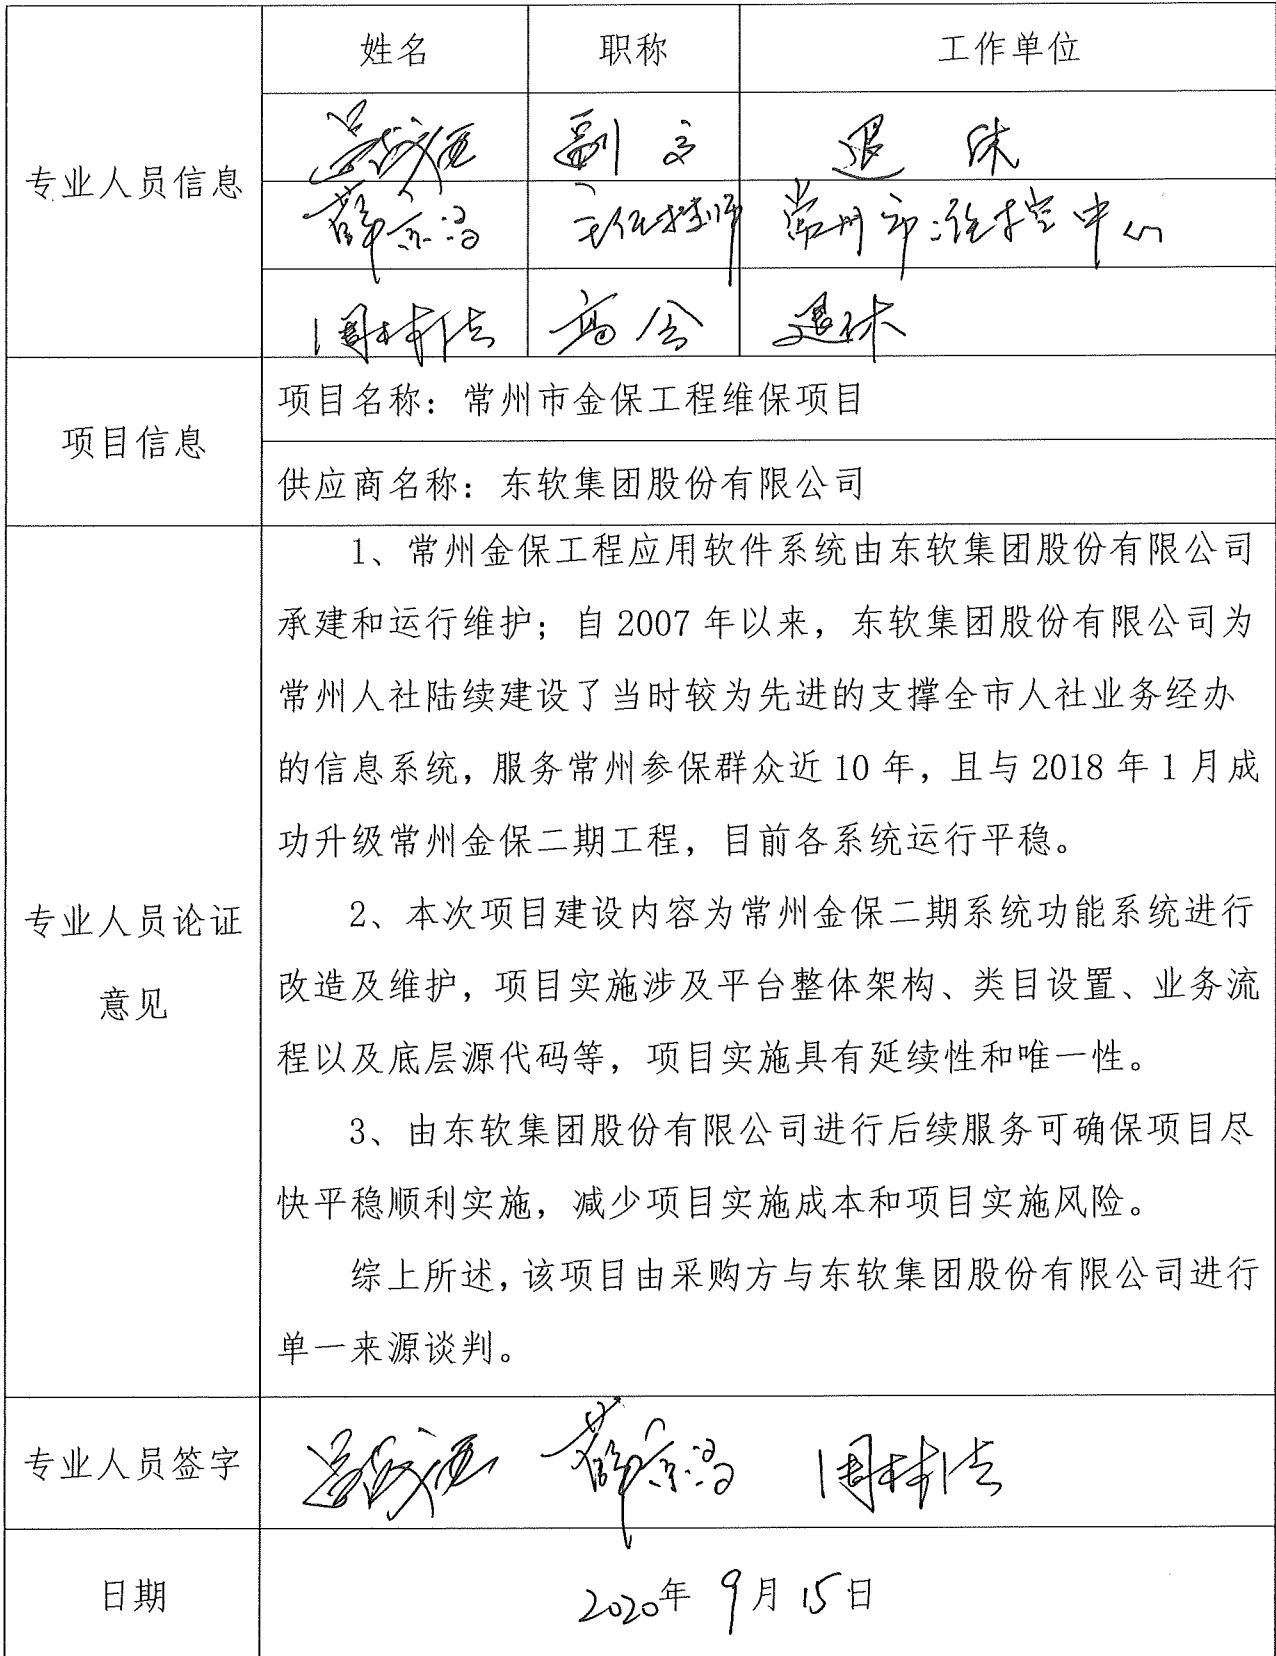 专业人员信息
姓名 职称 工作单位
退休
薛 常州市 中心
周林法 高会 退休
项目信息
项目名称：常州市金保工程维保项目
供应商名称：东软集团股份有限公司
专业人员论证
意见
1、常州金保工程应用软件系统由东软集团股份有限公司
承建和运行维护；自2007年以来，东软集团股份有限公司为
常州人社陆续建设了当时较为先进的支撑全市人社业务经办
的信息系统，服务常州参保群众近10年，且与2018年1月成
功升级常州金保二期工程，目前各系统运行平稳。
2、本次项目建设内容为常州金保二期系统功能系统进行
改造及维护，项目实施涉及平台整体架构、类目设置、业务流
程以及底层源代码等，项目实施具有延续性和唯一性。
3、由东软集团股份有限公司进行后续服务可确保项目尽
快平稳顺利实施，减少项目实施成本和项目实施风险。
综上所述，该项目由采购方与东软集团股份有限公司进行
单一来源谈判。
专业人员签字
薛 周林法
日期
2020年9月15日